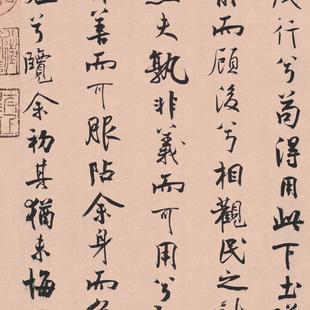 茂行兮苟得用此下土瞻
前而顧後兮相觀民之計
極夫孰非義而可用兮
非善而可服阽余身而危
死兮覽余初其猶未悔